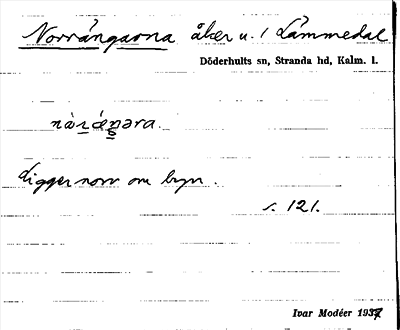 Norrångarna åker u. 1 Lämmedal
Döderhults sn, Stranda hd, Kalm. l.
nòrǽŋəra.
Ligger norr om byn.
s. 121.
Ivar Modéer 1937